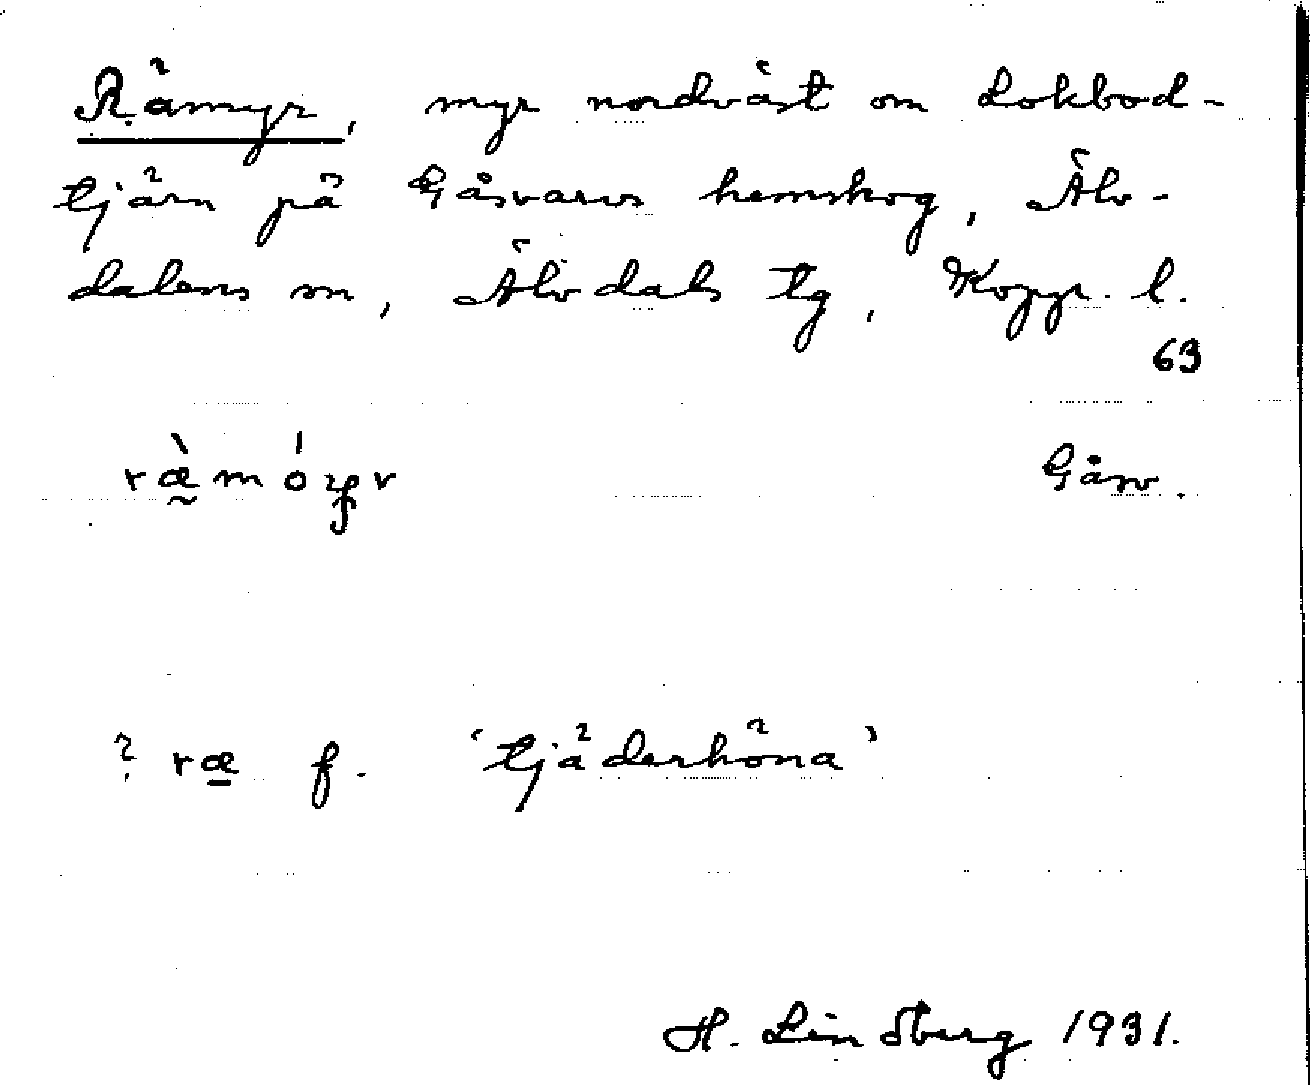 Rämyr, myr nordväst om Lokbod-
tjärn på Gåsvarvs hemskog, Älv-
dalens sn, Älvdals tg, Kopp. l.
63
Gåsv.
? ræ f. 'tjäderhöna'
H. Lindberg 1931.